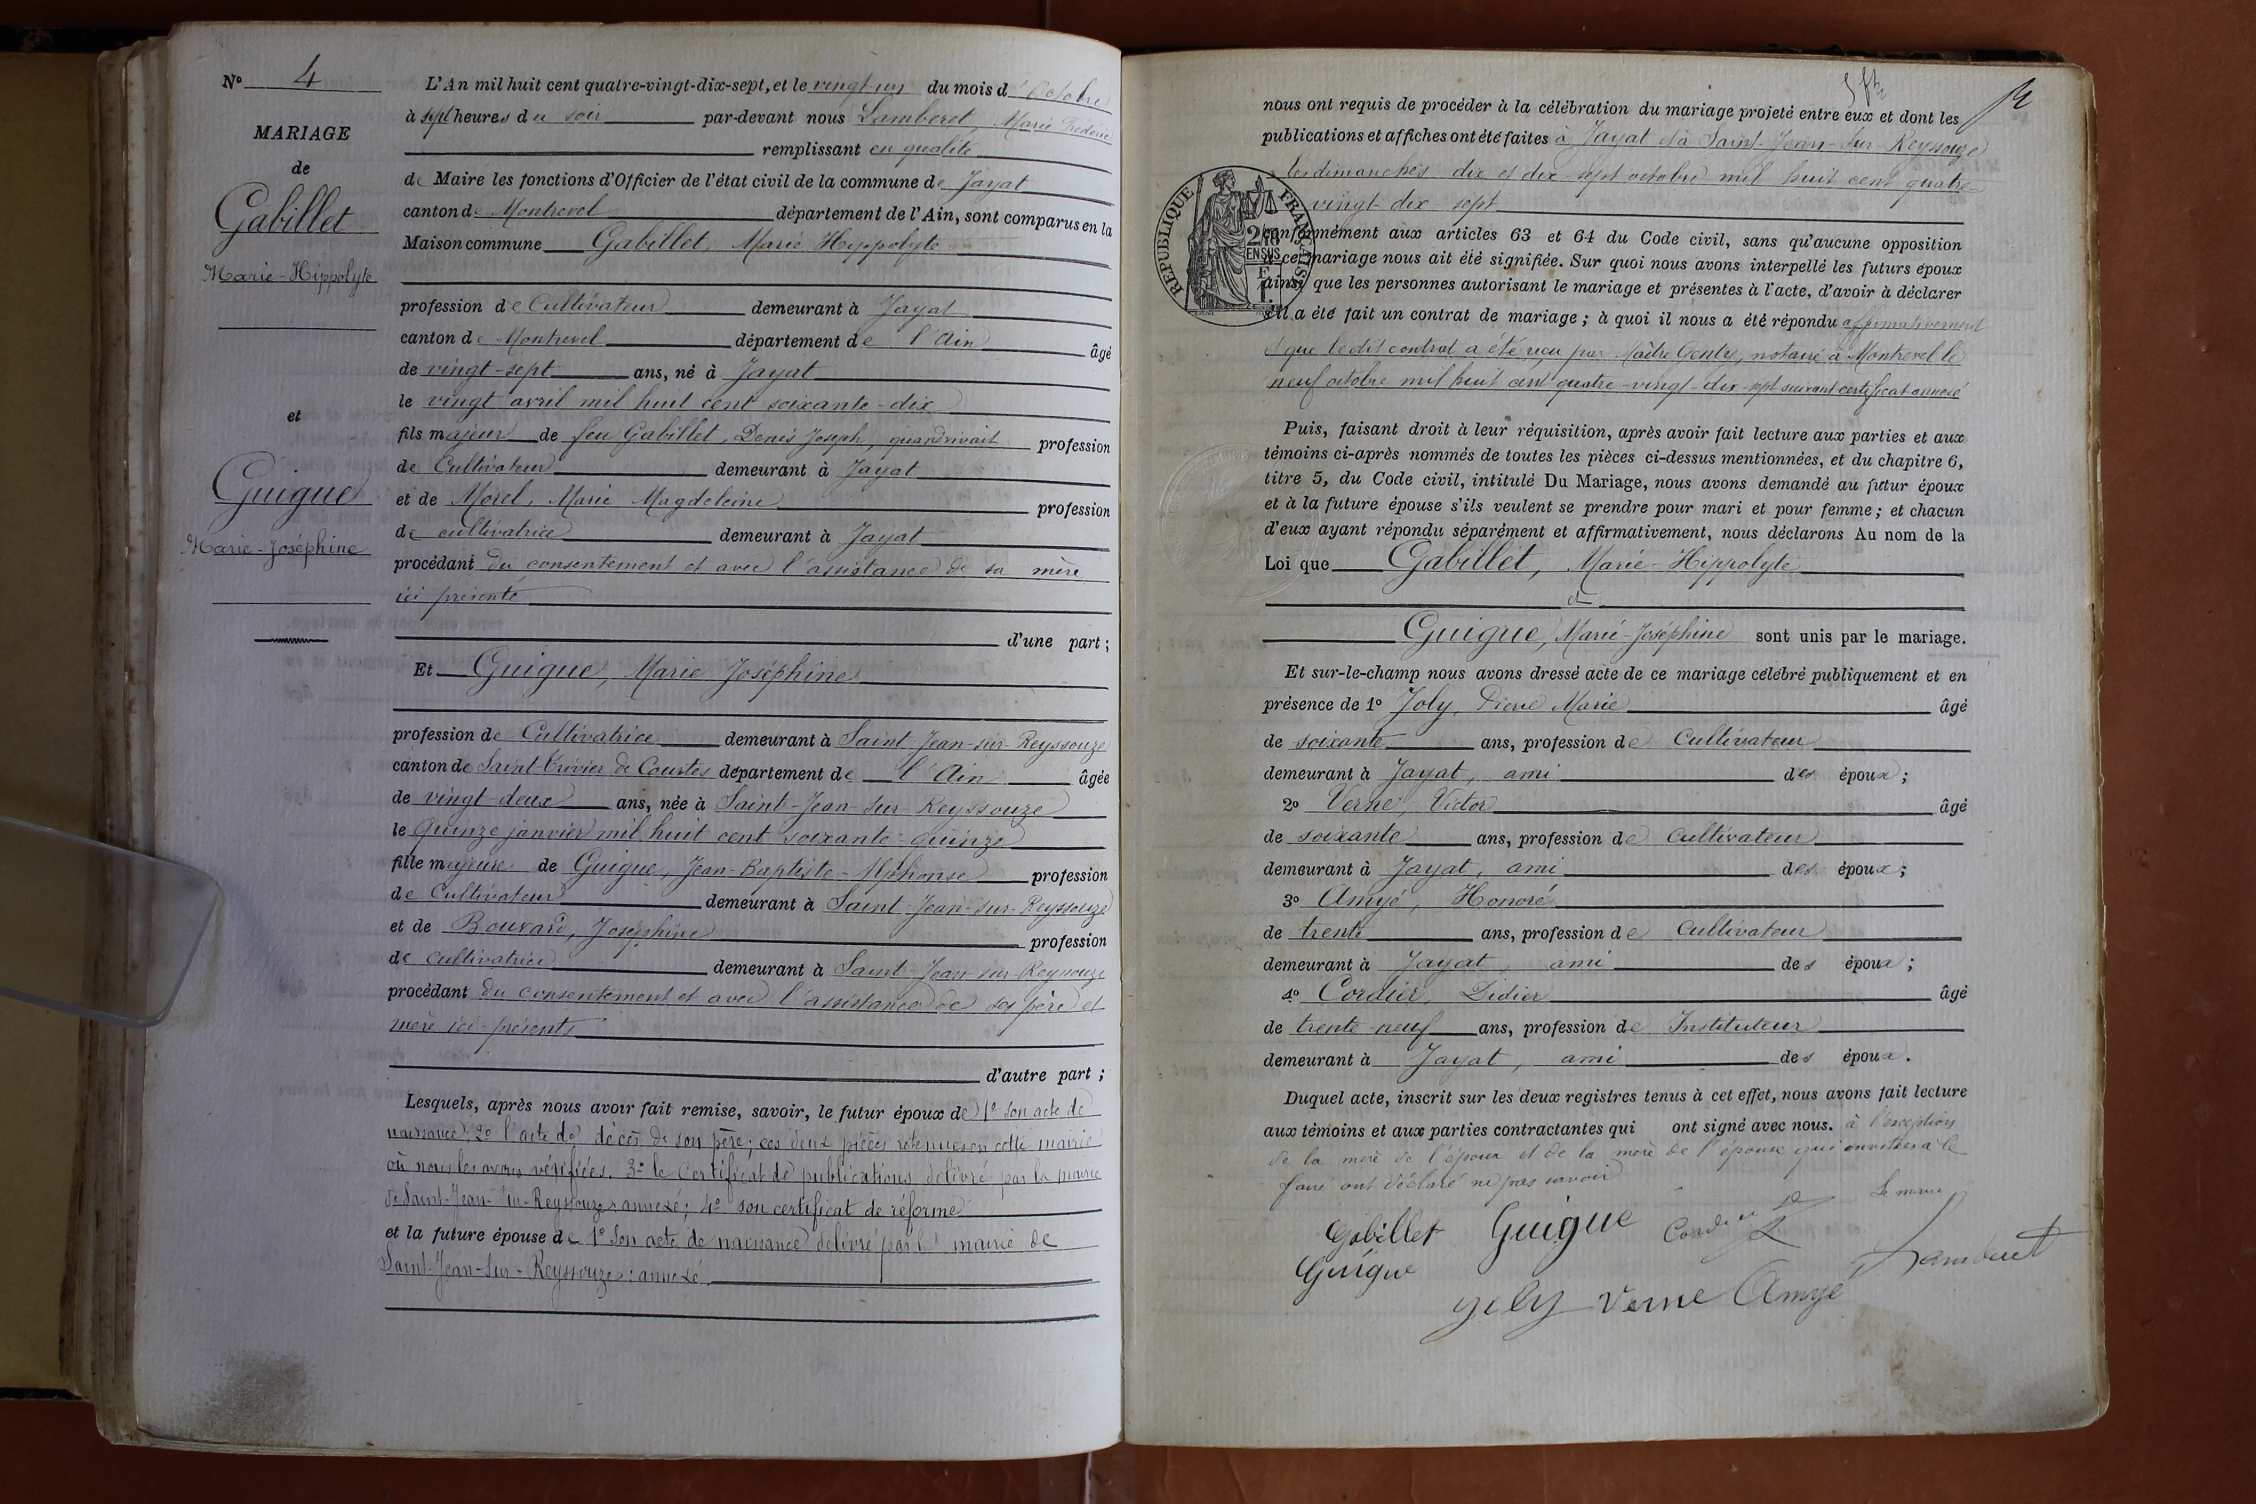 N° 4
MARIAGE
de
Gabillet
Marie-Hippolyte
et
Guigue
Marie-Joséphine
L'An mil huit cent quatre-vingt-dix-sept, et le vingt-un du mois d'Octobre
à sept heures du soir par-devant nous Lamberet, Marie Frédéric
remplissant en qualité
de Maire les fonctions d'Officier de l'état civil de la commune de Jayat
canton de Montrevel département de l'Ain, sont comparus en la
Maison commune Gabillet, Marie Hyppolyte
profession de Cultivateur demeurant à Jayat
canton de Montrevel département de l'Ain âgé
de vingt-sept ans, né à Jayat
le vingt avril mil huit cent soixante-dix
fils majeur de feu Gabillet, Denis Joseph, quand vivait profession
de Cultivateur demeurant à Jayat
et de Morel, Marie Magdeleine profession
de cultivatrice demeurant à Jayat
procédant du consentement et avec l'assistance de sa mère
ici présente
d'une part ;
Et Guigue, Marie Joséphine
profession de Cultivatrice demeurant à Saint-Jean-sur-Reyssouze
canton de Saint-Trivier de Courtes département de l'Ain âgée
de vingt-deux ans, née à Saint-Jean-sur-Reyssouze
le quinze janvier mil huit cent soixante-quinze
fille majeure de Guigue, Jean-Baptiste-Alphonse profession
de Cultivateur demeurant à Saint-Jean-sur-Reyssouze
et de Bouvard, Joséphine profession
de cultivatrice demeurant à Saint-Jean-sur-Reyssouze
procédant du consentement et avec l'assistance de ses père et
mère ici-présents
d'autre part ;
Lesquels, après nous avoir fait remise, savoir, le futur époux de 1° son acte de
naissance; 2° l'acte de décès de son père; ces deux pièces retenues en cette mairie
où nous les avons vérifiées. 3° le certificat de publications délivré par la mairie
de Saint-Jean-sur-Reyssouze annexé; 4° son certificat de réforme
et la future épouse de 1° Son acte de naissance délivré par la mairie de
Saint-Jean-sur-Reyssouze: annexé
nous ont requis de procéder à la célébration du mariage projeté entre eux et dont les
publications et affiches ont été faites à Jayat et à Saint-Jean-sur-Reyssouze
les dimanches dix et dix-sept octobre mil huit cent quatre
vingt-dix-sept
conformément aux articles 63 et 64 du Code civil, sans qu'aucune opposition
à ce mariage nous ait été signifiée. Sur quoi nous avons interpellé les futurs époux
ainsi que les personnes autorisant le mariage et présentes à l'acte, d'avoir à déclarer
s'il a été fait un contrat de mariage ; à quoi il nous a été répondu affirmativement
et que ledit contrat a été reçu par Maître Genty, notaire à Montrevel le
neuf octobre mil huit cent quatre-vingt-dix-sept suivant certificat annexé
RÉPUBLIQUE FRANÇAISE
EN SUS
Puis, faisant droit à leur réquisition, après avoir fait lecture aux parties et aux
témoins ci-après nommés de toutes les pièces ci-dessus mentionnées, et du chapitre 6,
titre 5, du Code civil, intitulé Du Mariage, nous avons demandé au futur époux
et à la future épouse s'ils veulent se prendre pour mari et pour femme ; et chacun
d'eux ayant répondu séparément et affirmativement, nous déclarons Au nom de la
Loi que Gabillet, Marie-Hippolyte
et
Guigue, Marie-Joséphine sont unis par le mariage.
Et sur-le-champ nous avons dressé acte de ce mariage célébré publiquement et en
présence de 1° Joly, Pierre Marie âgé
de soixante ans, profession de Cultivateur
demeurant à Jayat, ami des époux ;
2° Verne, Victor âgé
de soixante ans, profession de cultivateur
demeurant à Jayat, ami des époux ;
3° Amyé, Honoré
de trente ans, profession de Cultivateur
demeurant à Jayat, ami des époux ;
4° Cordier, Didier âgé
de trente-neuf ans, profession de Instituteur
demeurant à Jayat, ami des époux.
Duquel acte, inscrit sur les deux registres tenus à cet effet, nous avons fait lecture
aux témoins et aux parties contractantes qui ont signé avec nous. à l'exception
de la mère de l'époux et de la mère de l'épouse qui invitées à le
faire ont déclaré ne pas savoir
Le maire
Gabillet Guigue Cordier D
Guigue Lamberet
Joly Verne Amyé